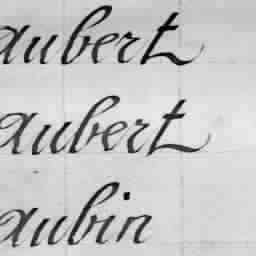 aubert
aubert
aubin